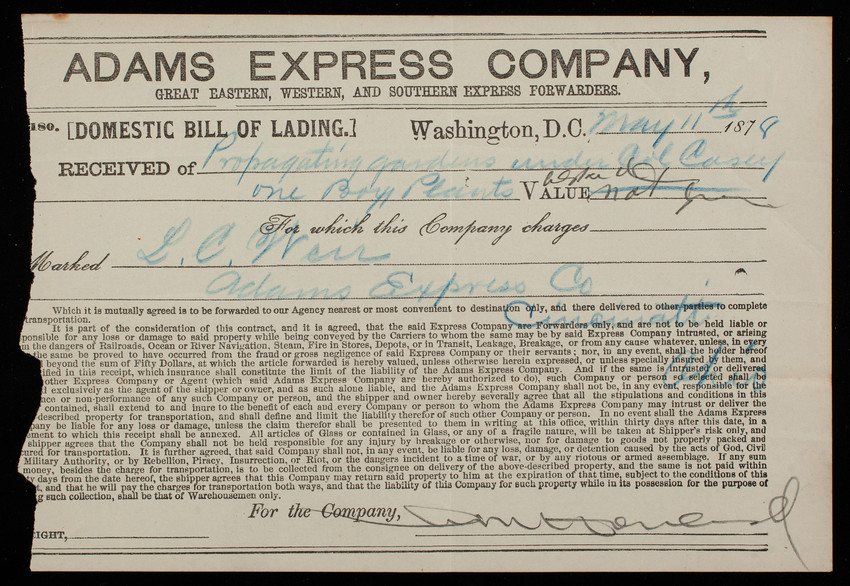 ADAMS EXPRESS COMPANY,
GREAT EASTERN, WESTERN, AND SOUTHERN EXPRESS FORWARDERS.
180. [DOMESTIC BILL OF LADING.] Washington, D.C. May 11th 1878
RECEIVED of Propagating gardens under Col Casey
one Box Plants VALUE asked not given
For which this Company charges
Marked L. C. Weir
Adams Express Co
Cincinnati
Ohio
Which it is mutually agreed is to be forwarded to our Agency nearest or most convenient to destination only, and there delivered to other parties to complete
transportation.
It is part of the consideration of this contract, and it is agreed, that the said Express Company are Forwarders only, and are not to be held liable or
ponsible for any loss or damage to said property while being conveyed by the Carriers to whom the same may be by said Express Company intrusted, or arising
m the dangers of Railroads, Ocean or River Navigation, Steam, Fire in Stores, Depots, or in Transit, Leakage, Breakage, or from any cause whatever, unless, in every
the same be proved to have occurred from the fraud or gross negligence of said Express Company or their servants; nor, in any event, shall the holder hereof
d beyond the sum of Fifty Dollars, at which the article forwarded is hereby valued, unless otherwise herein expressed, or unless specially insured by them, and
ified in this receipt, which insurance shall constitute the limit of the liability of the Adams Express Company. And if the same is intrusted or delivered
other Express Company or Agent (which said Adams Express Company are hereby authorized to do), such Company or person so selected shall be
d exclusively as the agent of the shipper or owner, and as such alone liable, and the Adams Express Company shall not be, in any event, responsible for the
ence or non-performance of any such Company or person, and the shipper and owner hereby severally agree that all the stipulations and conditions in this
contained, shall extend to and inure to the benefit of each and every Company or person to whom the Adams Express Company may intrust or deliver the
described property for transportation, and shall define and limit the liability therefor of such other Company or person. In no event shall the Adams Express
pany be liable for any loss or damage, unless the claim therefor shall be presented to them in writing at this office, within thirty days after this date, in a
ement to which this receipt shall be annexed. All articles of Glass or contained in Glass, or any of a fragile nature, will be taken at Shipper's risk only, and
shipper agrees that the Company shall not be held responsible for any injury by breakage or otherwise, nor for damage to goods not properly packed and
ured for transportation. It is further agreed, that said Company shall not, in any event, be liable for any loss, damage, or detention caused by the acts of God, Civil
Military Authority, or by Rebellion, Piracy, Insurrection, or Riot, or the dangers incident to a time of war, or by any riotous or armed assemblage. If any sum
money, besides the charge for transportation, is to be collected from the consignee on delivery of the above-described property, and the same is not paid within
ty days from the date hereof, the shipper agrees that this Company may return said property to him at the expiration of that time, subject to the conditions of this
t, and that he will pay the charges for transportation both ways, and that the liability of this Company for such property while in its possession for the purpose of
ng such collection, shall be that of Warehousemen only.
For the Company,
EIGHT,